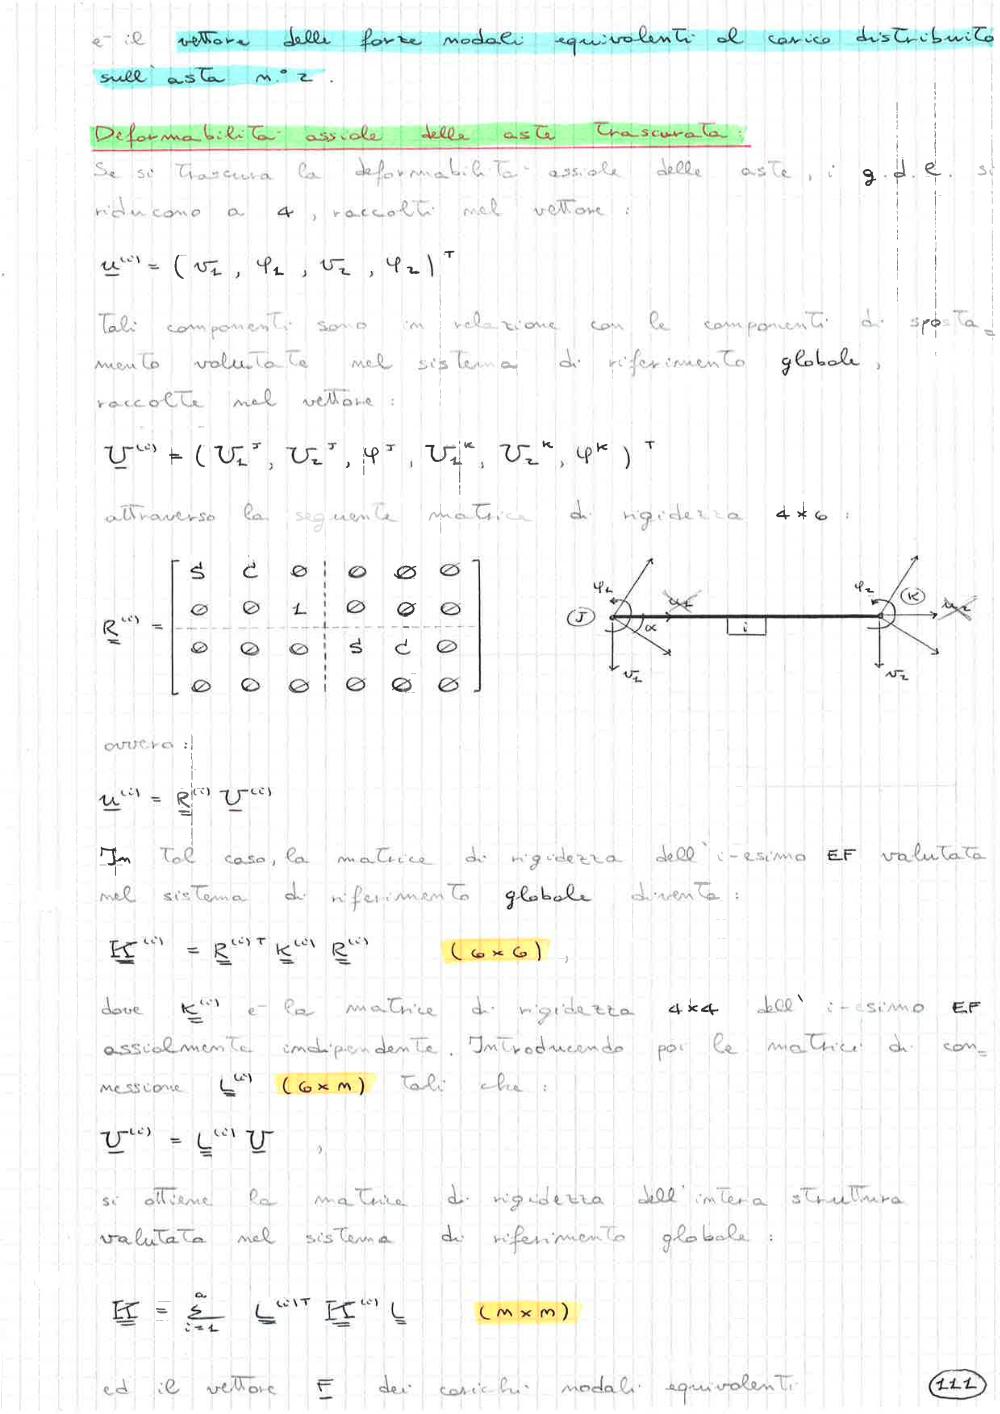 e' il vettore delle forze nodali equivalenti al carico distribuito
sull'asta n.° 2.
Deformabilità assiale delle aste trascurata:
Se si trascura la deformabilità assiale delle aste, i g.d.e. si
riducono a 4, raccolti nel vettore:
u⁽ⁱ⁾ = (v₁, φ₁, v₂, φ₂)ᵀ
Tali componenti sono in relazione con le componenti di sposta=
mento valutate nel sistema di riferimento globale,
raccolte nel vettore:
U⁽ⁱ⁾ = (U₁ᴶ, U₂ᴶ, φᴶ, U₁ᴷ, U₂ᴷ, φᴷ)ᵀ
attraverso la seguente matrice di rigidezza 4*6:
R⁽ⁱ⁾ =
S C 0 0 0 0
0 0 1 0 0 0
0 0 0 S C 0
0 0 0 0 0 0
φ₁ u₁ φ₂ K u₂
J α i
v₁ v₂
ovvero:
u⁽ⁱ⁾ = R⁽ⁱ⁾ U⁽ⁱ⁾
In tal caso, la matrice di rigidezza dell'i-esimo EF valutata
nel sistema di riferimento globale diventa:
K⁽ⁱ⁾ = R⁽ⁱ⁾ᵀ K⁽ⁱ⁾ R⁽ⁱ⁾ (6×6),
dove K⁽ⁱ⁾ e' la matrice di rigidezza 4*4 dell'i-esimo EF
assialmente indipendente. Introducendo poi le matrici di con=
nessione L⁽ⁱ⁾ (6×m) tali che:
U⁽ⁱ⁾ = L⁽ⁱ⁾ U,
si ottiene la matrice di rigidezza dell'intera struttura
valutata nel sistema di riferimento globale:
K = Σᵢ₌₁ᵃ L⁽ⁱ⁾ᵀ K⁽ⁱ⁾ L (m×m)
ed il vettore F dei carichi nodali equivalenti
111